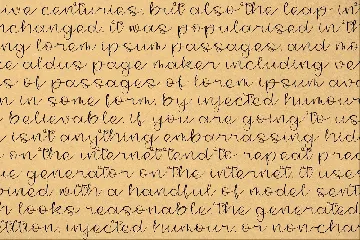 ve centuries, but also the leap in
nchanged it was popularised in th
ng lorem ipsum passages, and m
e aldus page maker including ve
s of passages of lorem ipsum av
n in some form, by injected humou
believable. if you are going to us
isn't anything embarrassing hid
on the internet tend to repeat pre
ue generator on the internet. it uses
bined with a handful of model sent
h looks reasonable. the generated
etition, injected humour, or noncha